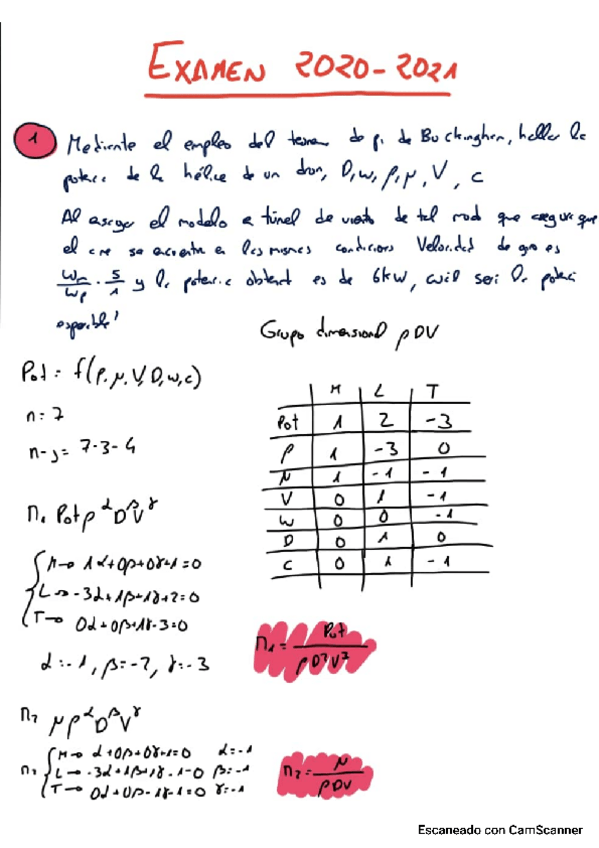 EXAMEN 2020-2021
1 Mediante el empleo del teorema de pi de Buckingham, hallar la
potencia de la hélice de un dron, D, w, ρ, μ, V, c
Al ensayar el modelo a túnel de viento de tal modo que asegure que
el aire se encuentra en las mismas condiciones Velocidad de giro es
Wm/Wp = 5/1 y la potencia obtenida es de 6kW, cuál será la potencia
esperable?
Grupo dimensional ρDV
Pot = f(ρ, μ, V, D, w, c)
n = 7
n-j = 7-3 = 4
M L T
Pot 1 2 -3
ρ 1 -3 0
μ 1 -1 -1
V 0 1 -1
W 0 0 -1
D 0 1 0
C 0 1 -1
Π1 Pot ρ^α D^β V^γ
M→ 1α+0β+0γ+1=0
L→ -3α+1β+1γ+2=0
T→ 0α+0β-1γ-3=0
α=-1, β=-2, γ=-3
Π1 = Pot / ρD²V³
Π2 μρ^α D^β V^γ
Π2 M→ α+0β+0γ+1=0 α=-1
L→ -3α+1β+1γ-1=0 β=-1
T→ 0α+0β-1γ-1=0 γ=-1
Π2 = μ / ρDV
Escaneado con CamScanner